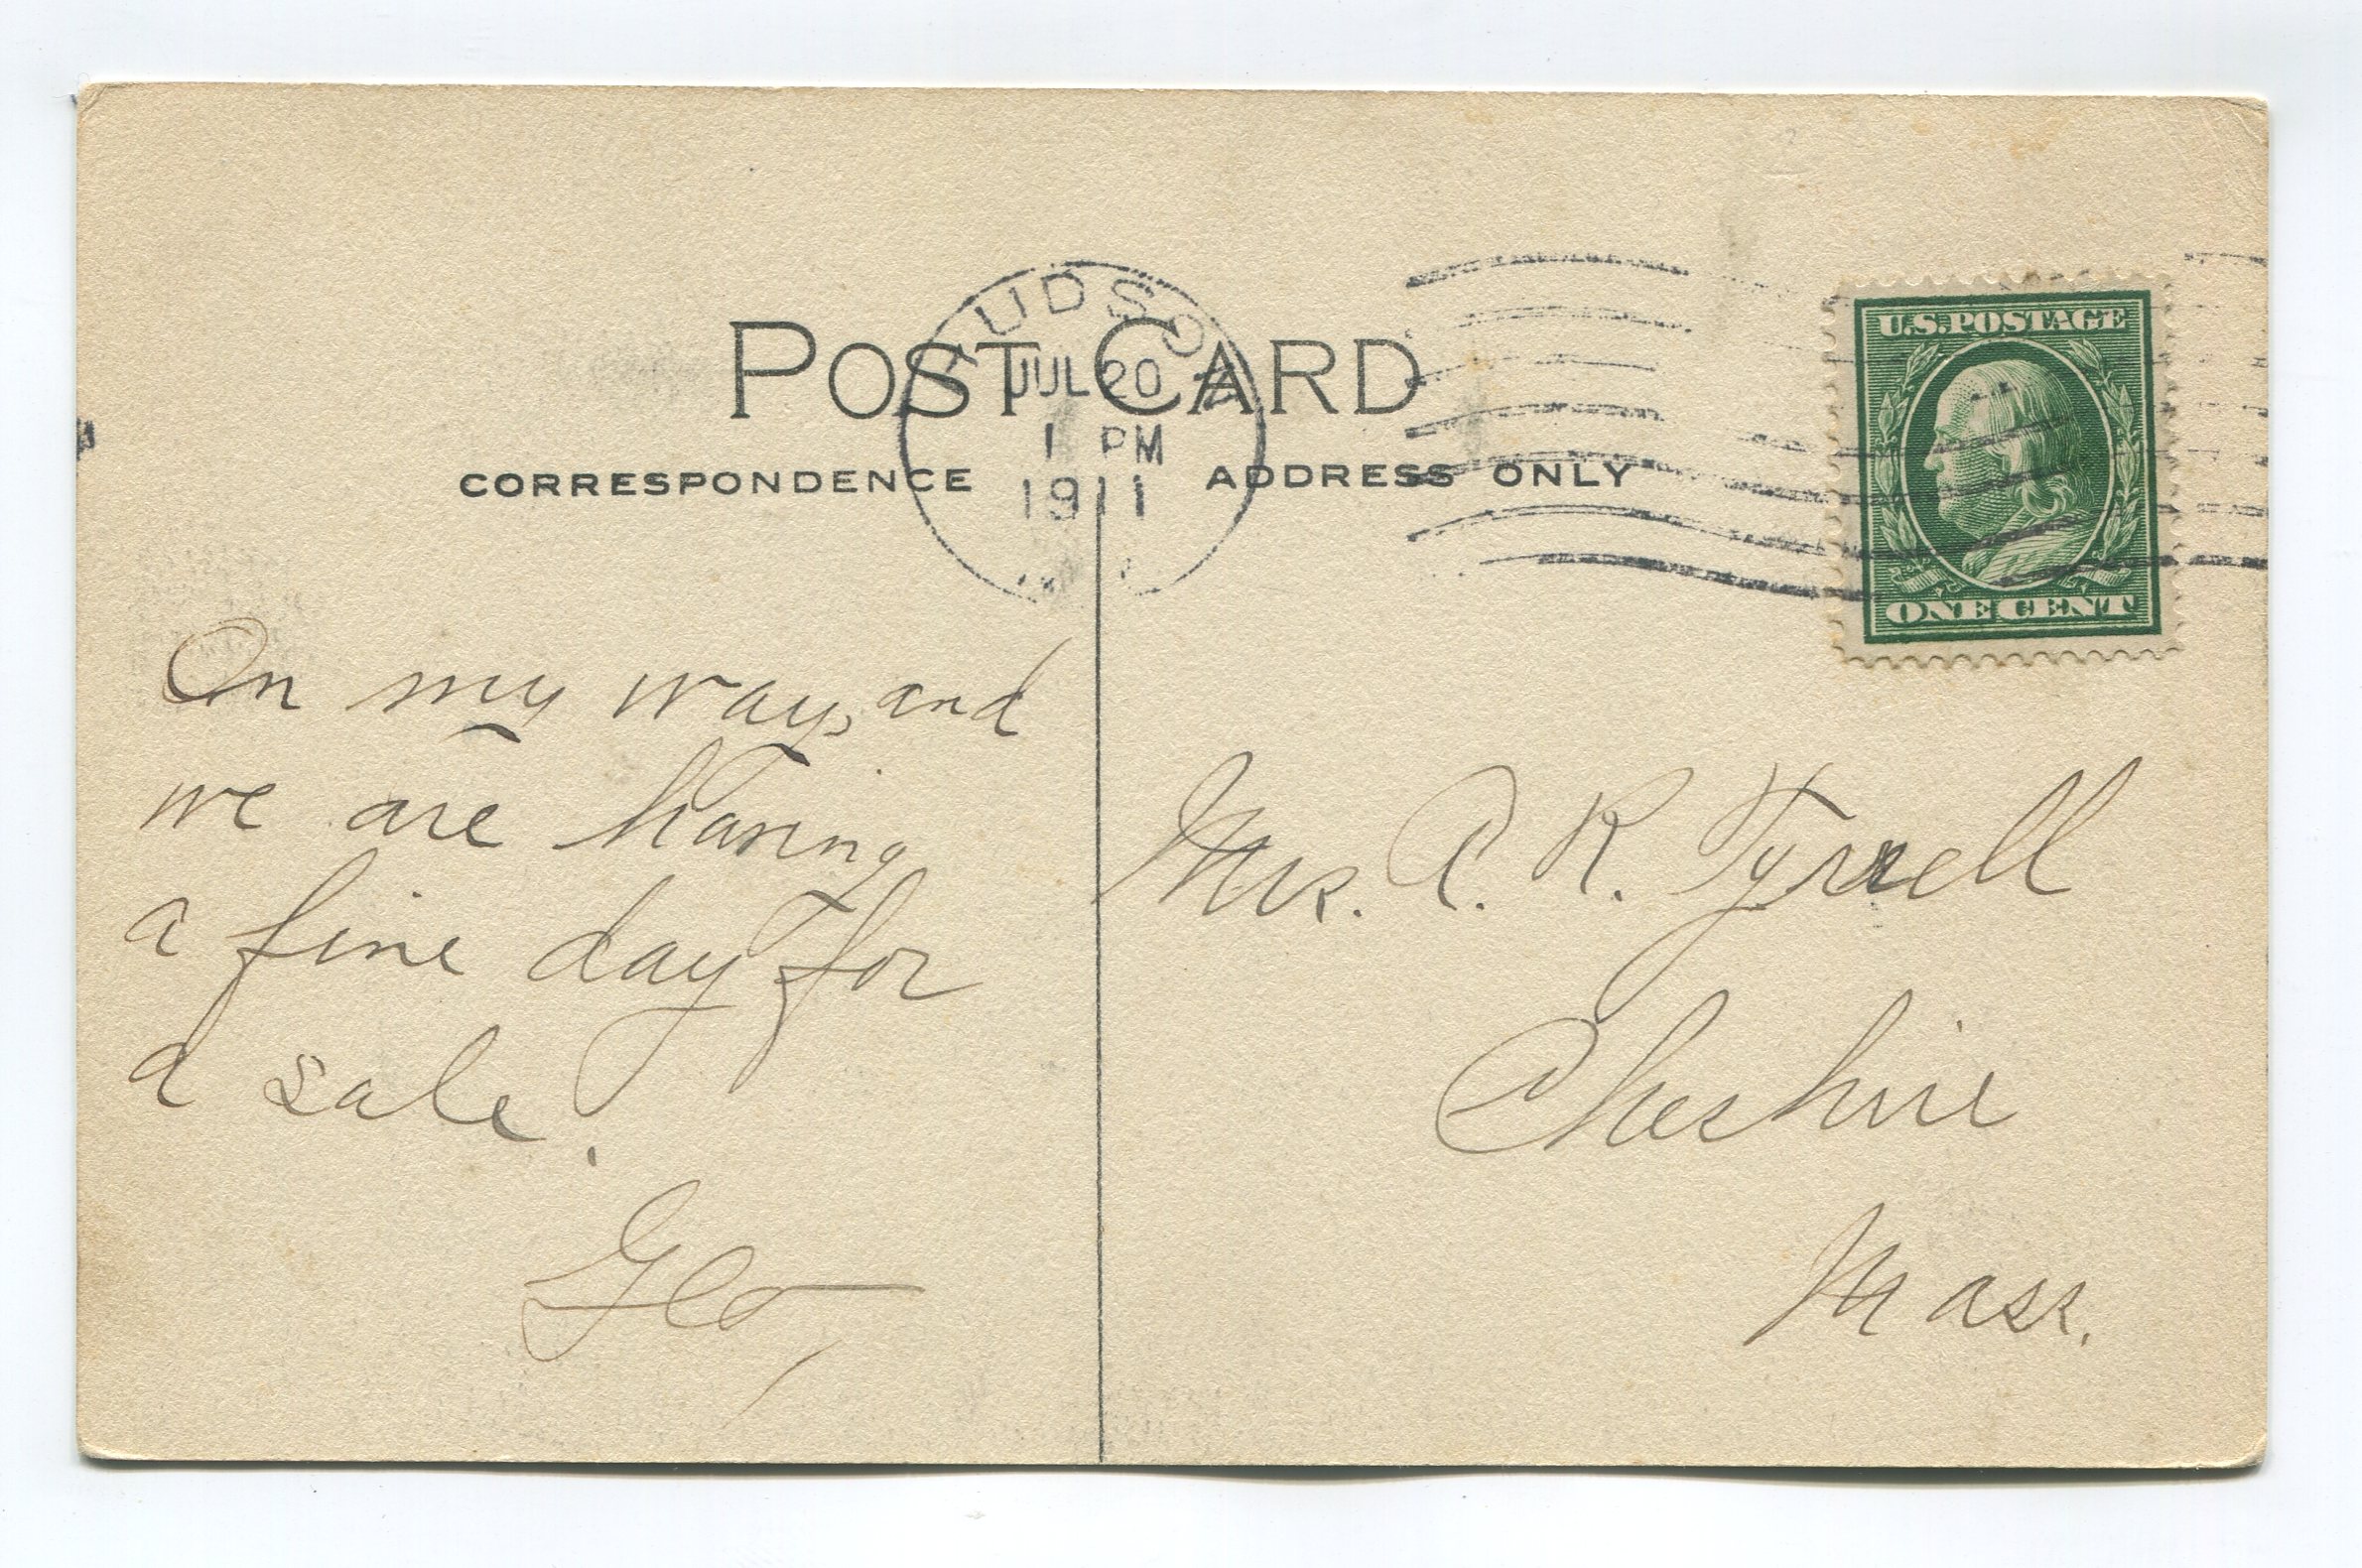 POST CARD
HUDSON
JUL 20
1 PM
1911
CORRESPONDENCE
ADDRESS ONLY
U.S. POSTAGE
ONE CENT
On my way, and
we are having
a fine day for
a sale.
Geo
Mrs. A. R. Tyrrell
Cheshire
Mass.